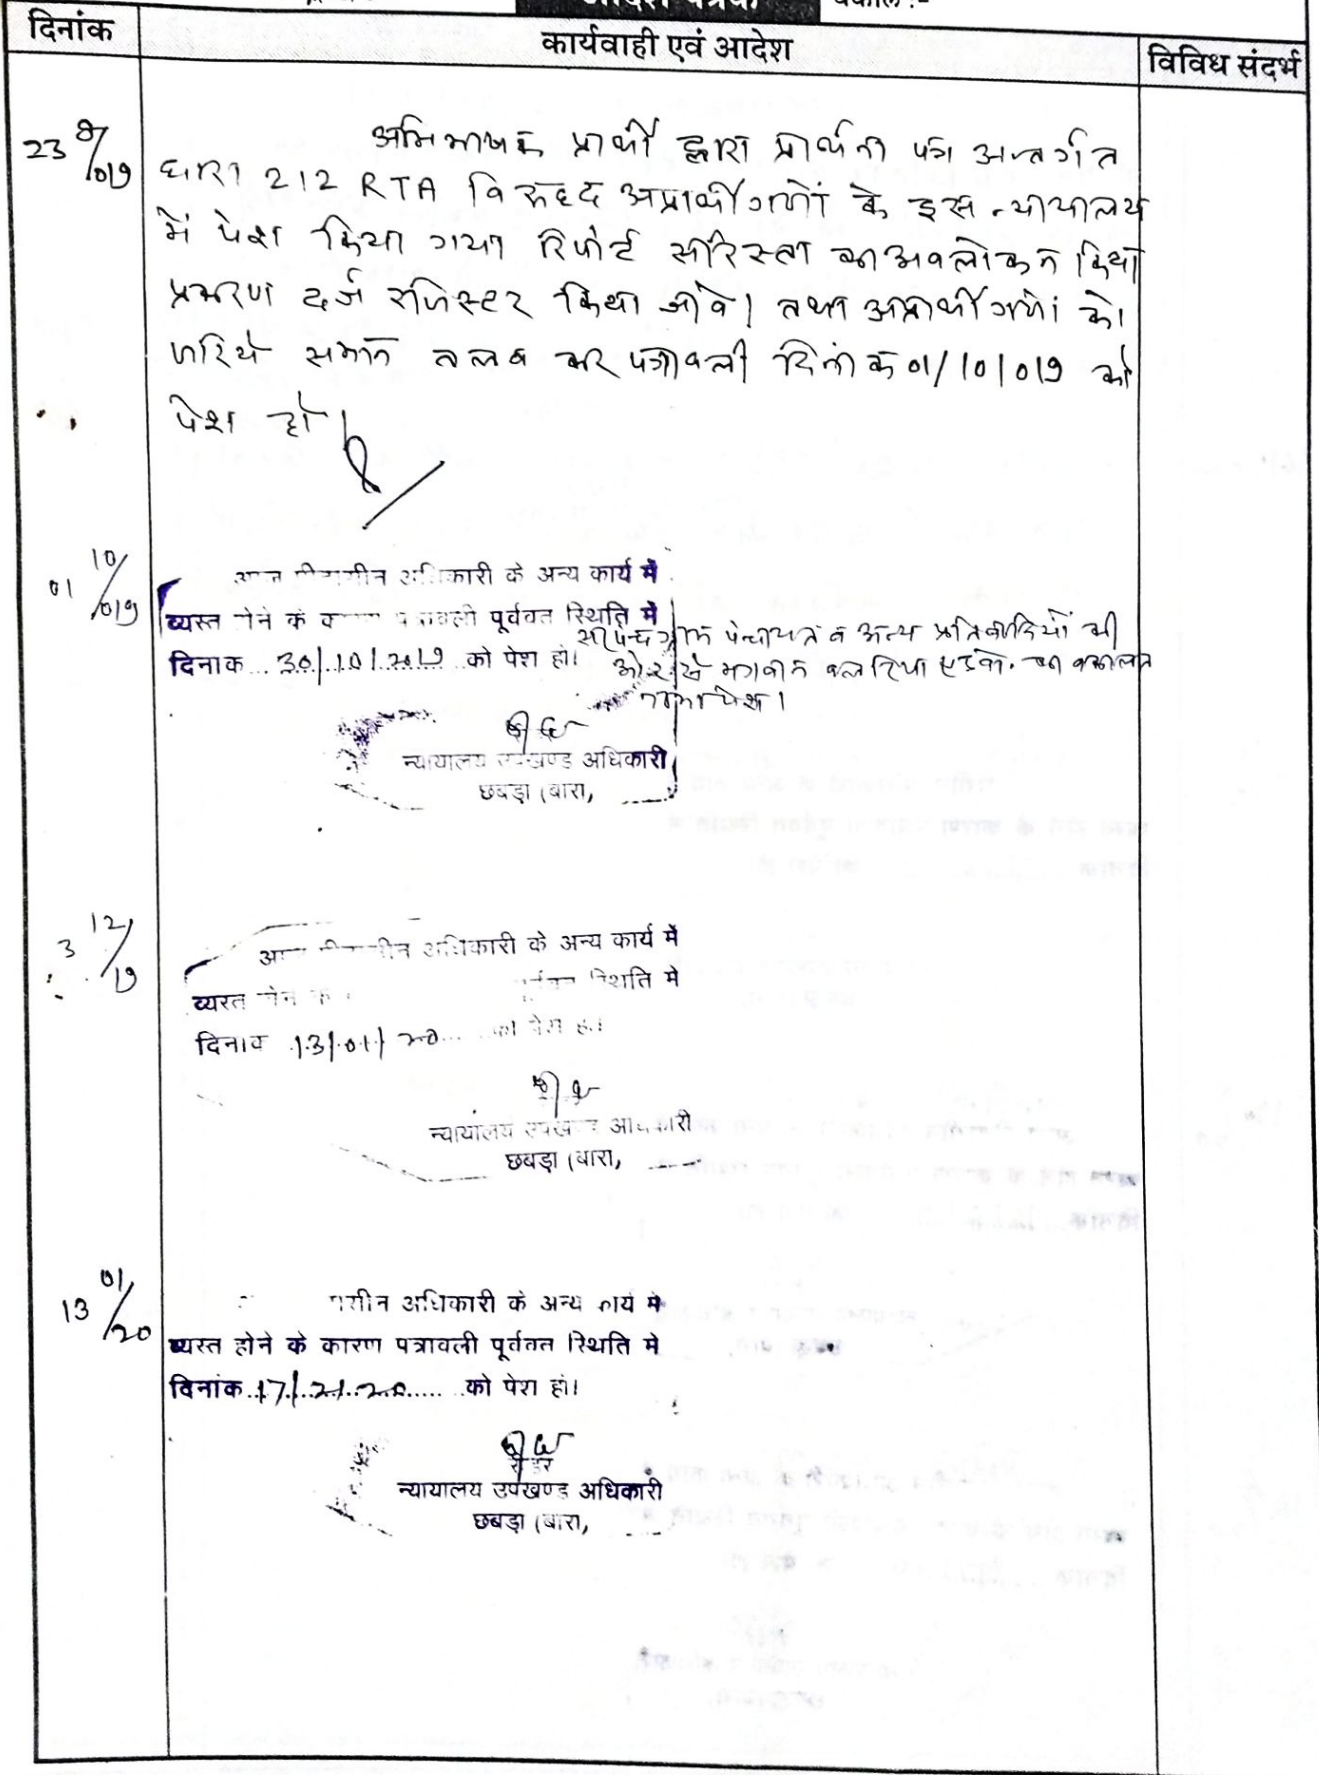 आदेश पत्रक
दिनांक
कार्यवाही एवं आदेश
विविध संदर्भ
23 9/019
अभिभाषक प्रार्थी द्वारा प्रार्थना पत्र अन्तर्गत
धारा 212 RTA विरुद्ध अप्रार्थीगणों के इस न्यायालय
में पेश किया गया रिपोर्ट सरिस्ता का अवलोकन किया
प्रकरण दर्ज रजिस्टर किया जावे। तथा अप्रार्थीगणों को
जरिये समन तलब कर पत्रावली दिनांक 01/10/019 को
पेश हो
01 10/019
अधिकारी के अन्य कार्य में
व्यस्त होने के पत्रावली पूर्ववत स्थिति में
दिनाक 30/10/2019 को पेश हो।
सरपंच ग्राम पंचायत व अन्य प्रतिवादियों की
ओर से एडवो. का वकालत
नामा पेश।
न्यायालय उपखण्ड अधिकारी
छबड़ा (बारा,
3 12/19
अधिकारी के अन्य कार्य में
व्यस्त स्थिति मे
दिनाक 13/01/20 को पेश हो।
न्यायालय उपखण्ड अधिकारी
छबड़ा (बारा,
13 01/20
अधिकारी के अन्य कार्य मे
व्यस्त होने के कारण पत्रावली पूर्ववत स्थिति मे
दिनांक 17/2/20 को पेश हो।
रीडर
न्यायालय उपखण्ड अधिकारी
छबड़ा (बारा,